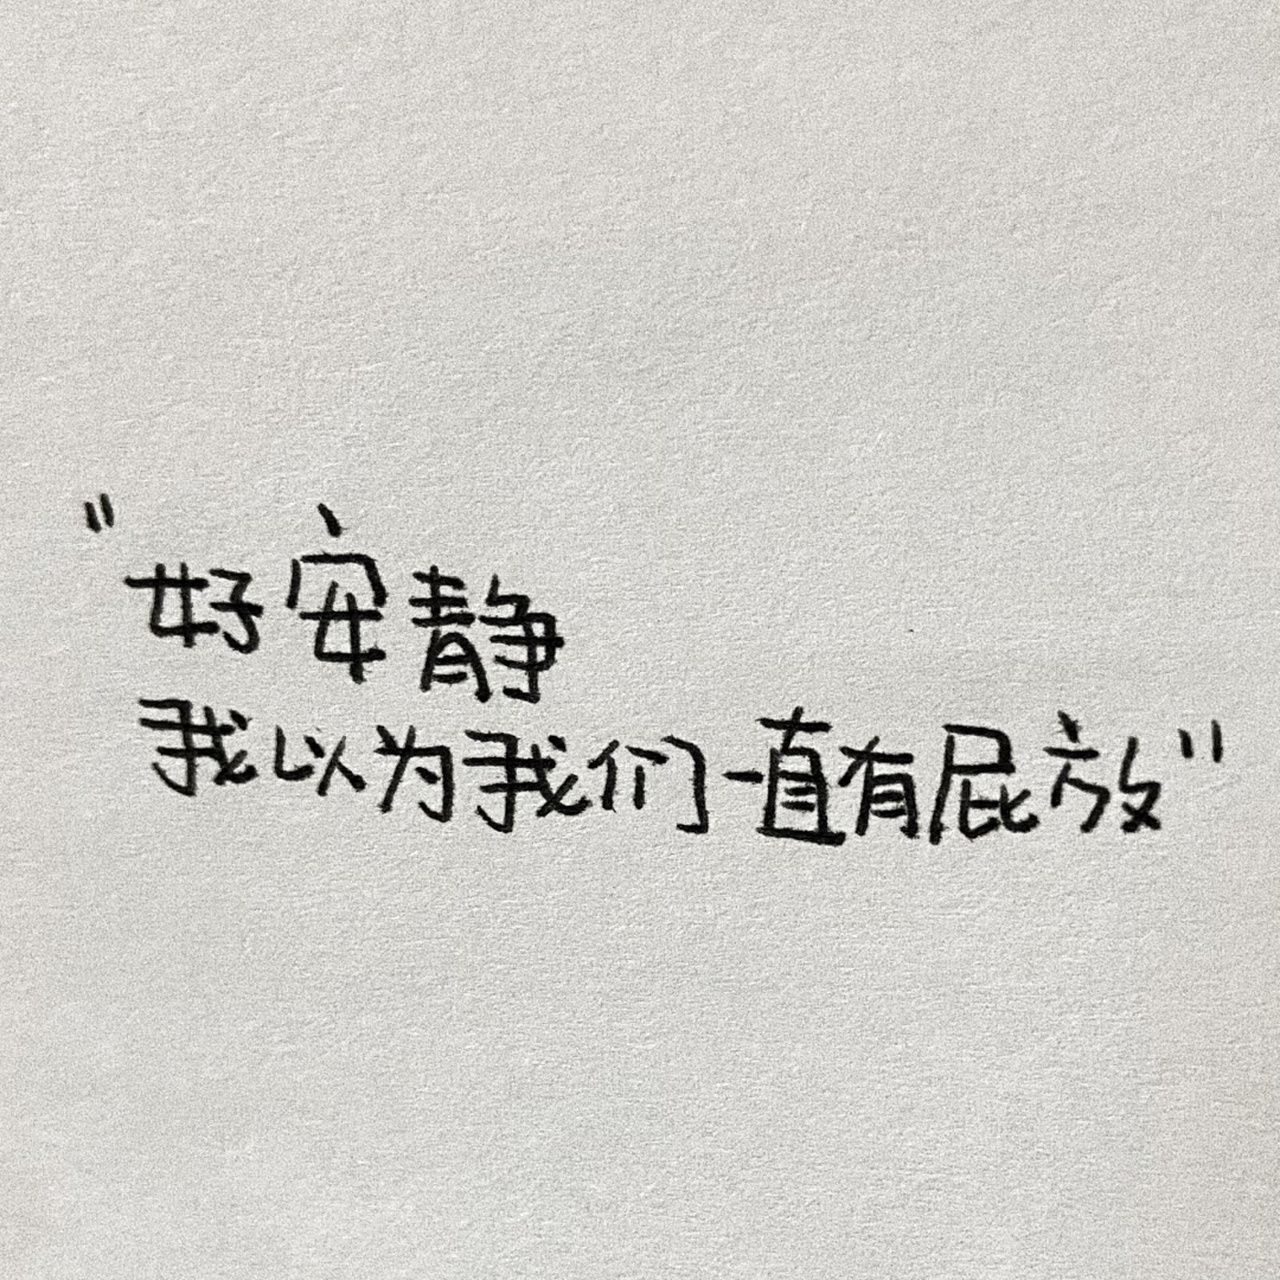 "好安静
我以为我们一直有屁放"